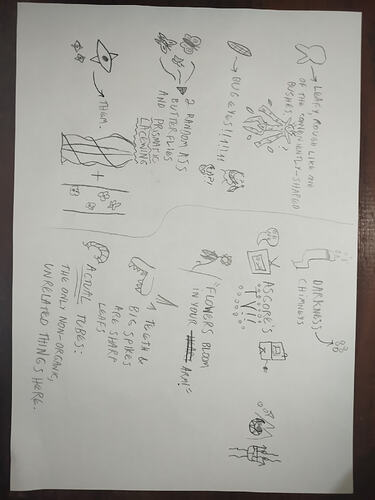 → LEAFY, ROUGH LIKE ONE
OF THE CONVENIENTLY-SHAPED
BUSHES.
→ BUG EYES!!!1!11
→ 2 RANDOM ASS
BUTTERFLIES
AND PRISMATIC
LACEWING
→ THEM.
+
DARKNESS
CHIMNEYS
ASGORE'S
"FLOWERS BLOOM
IN YOUR ARM!"
↑ TEETH &
BIG SPIKES
ARE SHARP
LEAFS
ACTUAL TUBES:
THE ONLY NON-ORGANIC,
UNRELATED THINGS HERE.